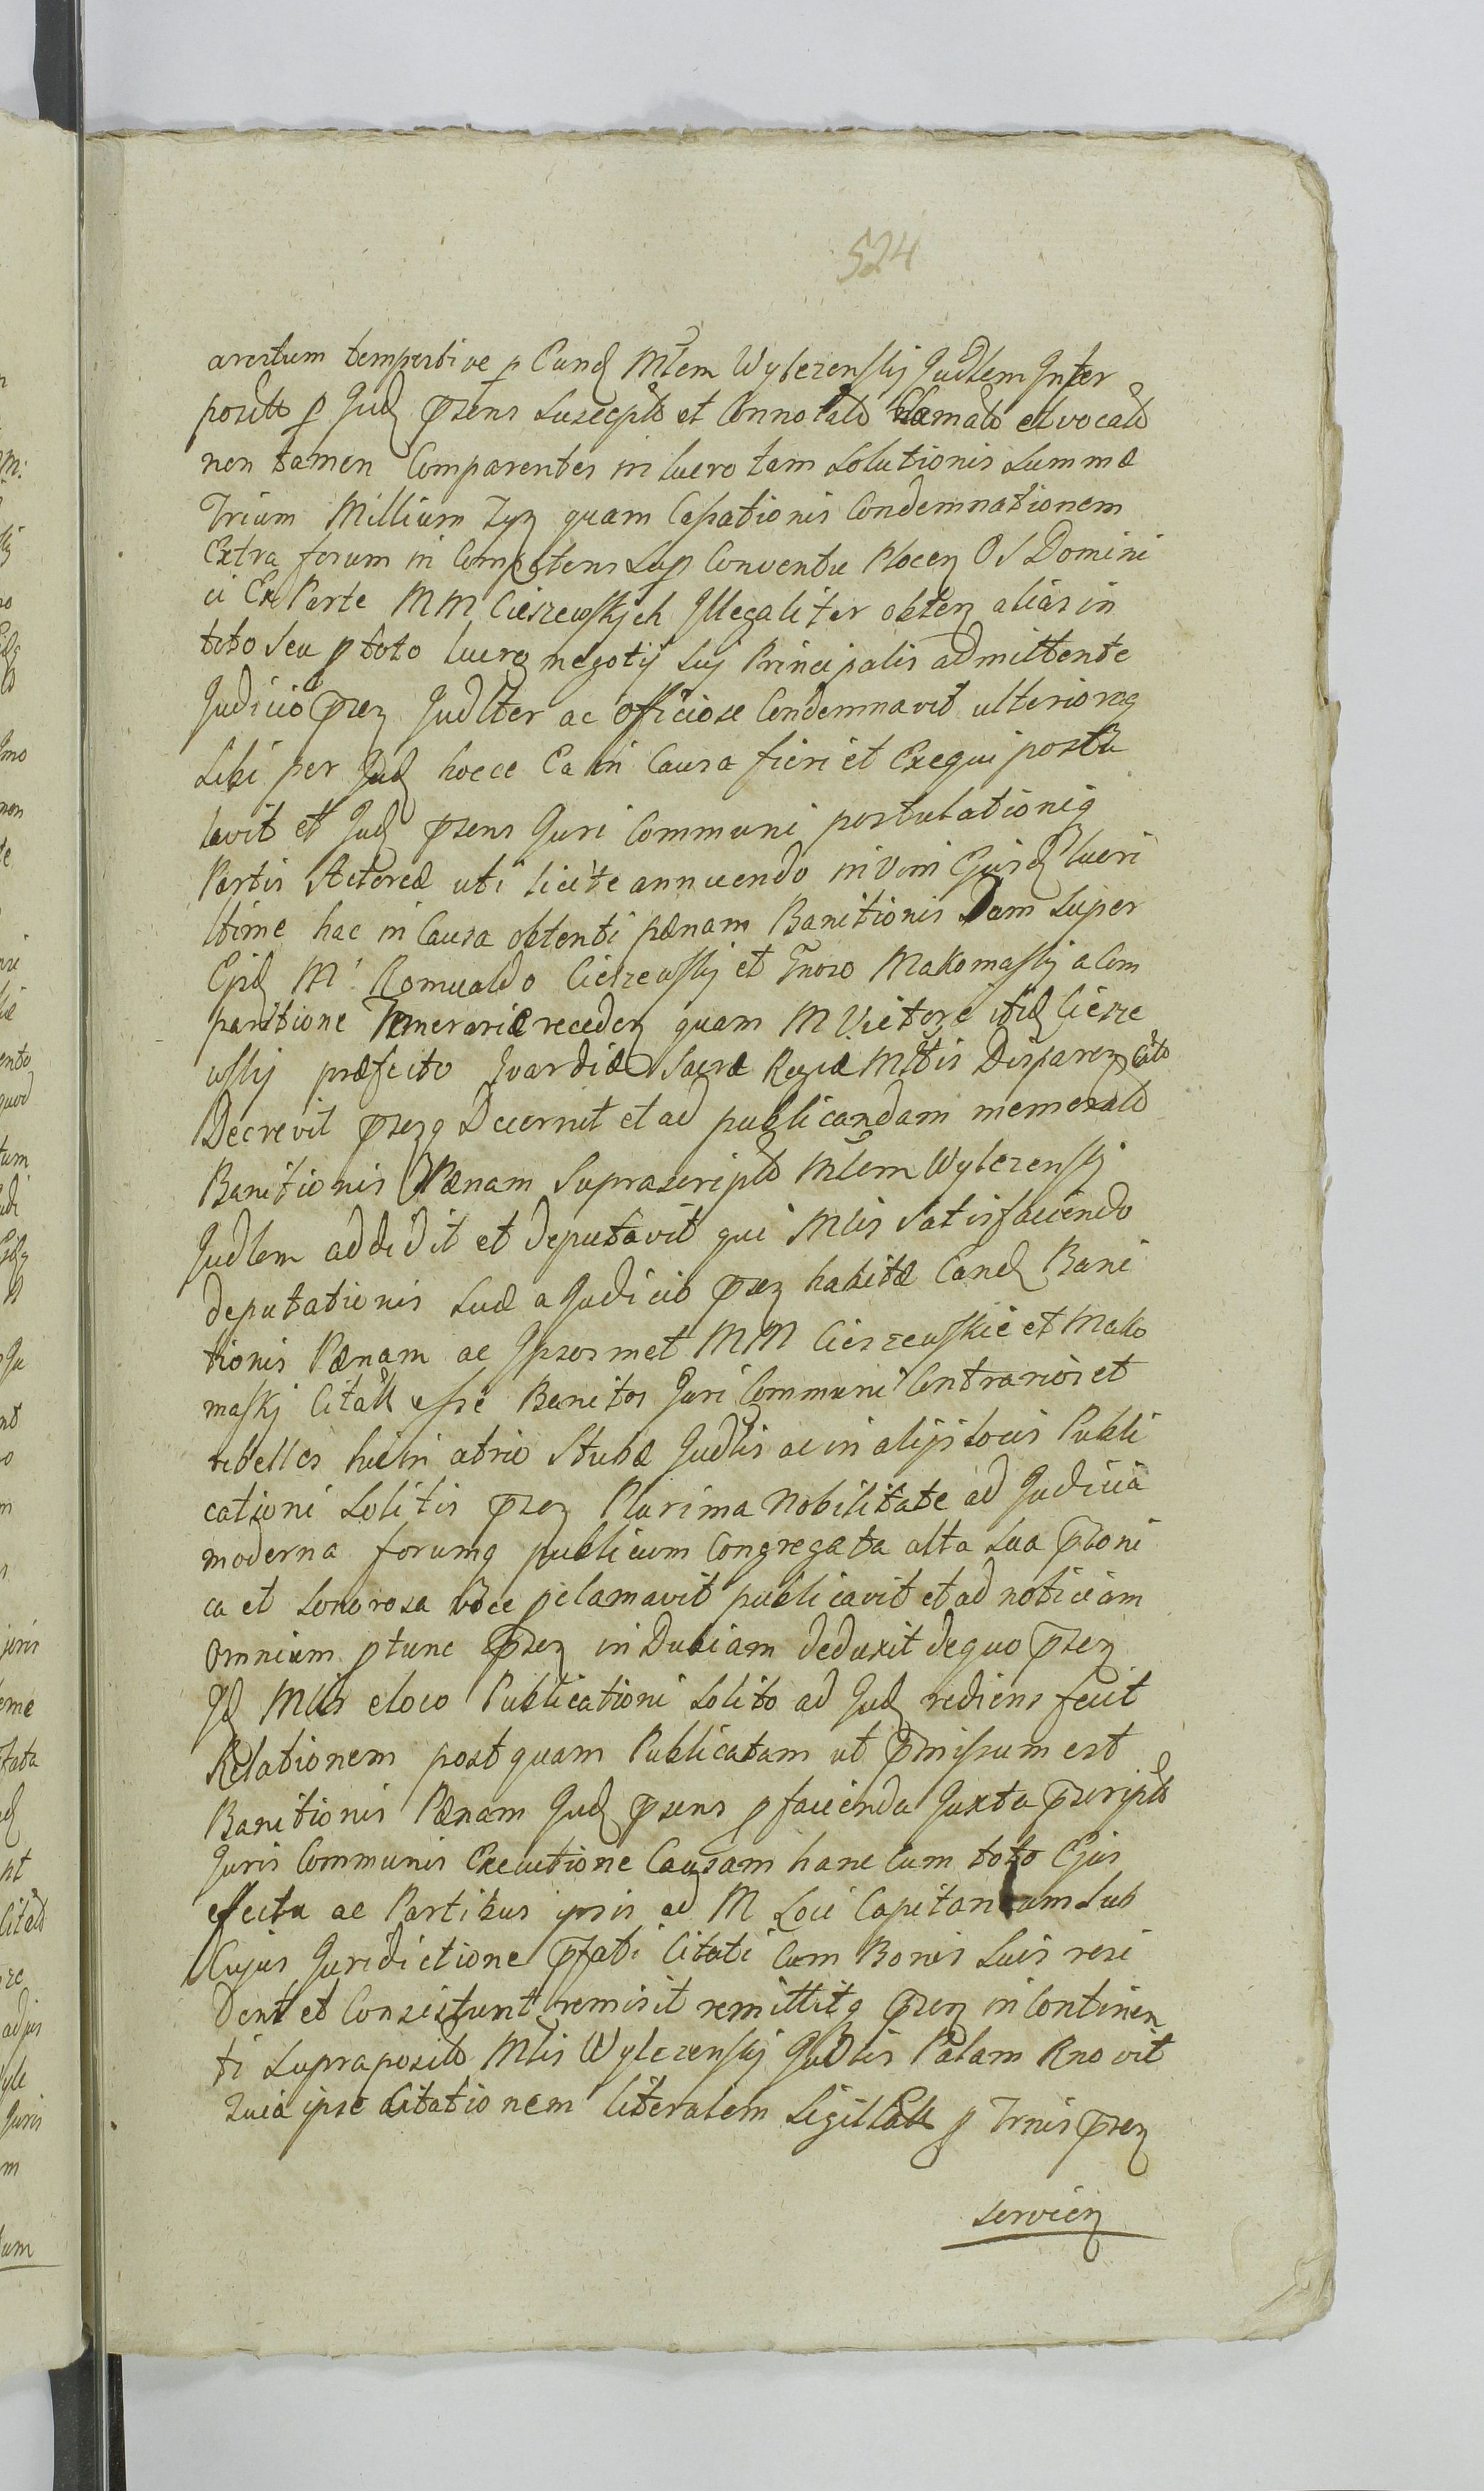 524
arestum tempestive p Eund Mtlem Wylezenskij Judtem Inter
positt p Jud pzens Suscept et Connotatt Clamatt et vocatt
non tamen Comparentes in lucro tam Solutionis Summæ
Trium Millium Tyn quam Cassationis Condemnationem
Extra forum in Competens Sup Conventu Plocen OS Domini
ci Ex Parte MM Cieszewskych Illegaliter obten alias in
toto Seu p toto lucro negotij Sui Principalis admittente
Judicio pzen Judlter ac officiose Condemnavit ulterioreq
Sibi per Jud hocce Ea in Causa fieri et Exequi postu
lavit et Jud pzens Juri Communi postulationiq
Partis Actoreæ uti licite annuendo in Vim Ejusd lucri
ltime hac in Causa obtenti pænam Banitionis Dam Super
Eisd M: Romualdo Cieszewskj et Gnoso Makomaskj a Com
paritione Temerariæ receden quam M Victore itidCiesze
wskij præfecto Gvardiæ Sacræ Regiæ Mttis Disparen Citt
Decrevit pzenq Decernit et ad publicandam memoratt
Banitionis Pænam Suprascriptt Mtlem Wylezenskj
Judlem addidit et deputavit qui Mlis Satisfaciendo
deputationis Suæ a Judicio pzen habitæ Eand Bani
tionis Pænam ac Ipsosmet MM Cieszewskie et Mako
maskj Citatt esse Banitos Juri Communi Contrarios et
rebelles hic in atrio Stubæ Judlis ac in alijs Locis Publi
cationi Solitis pzen Plurima Nobilitate ad Judicia
moderna forumq publicum Congregata alta Sua ptoni
ca et Sonorosa voce pclamavit publicavit et ad noticiam
omnium ptunc pzen in Dubiam deduxit de quo pzen
Id Mlis e loco Publicationi Solito ad Jud rediens fecit
Relationem post quam Publicatam ut pmissum est
Banitionis Pænam Jud pzens p facienda Juxta pzscriptt
Juris Communis Executione Causam hanc Cum toto Ejus
effectu ac Partibus ipsis ad M Loci Capitaneum Sub
Cujus Juridictione pfati Citati Cum Bonis Suis resi
Dent et Consistunt remisit remittitq pzen in Continen
ti Supraposittt Mlis Wylezenskj Judlis Palam Rnovit
Quia ipse Citationem literalem Sigillatt p Trnis pzen
servien